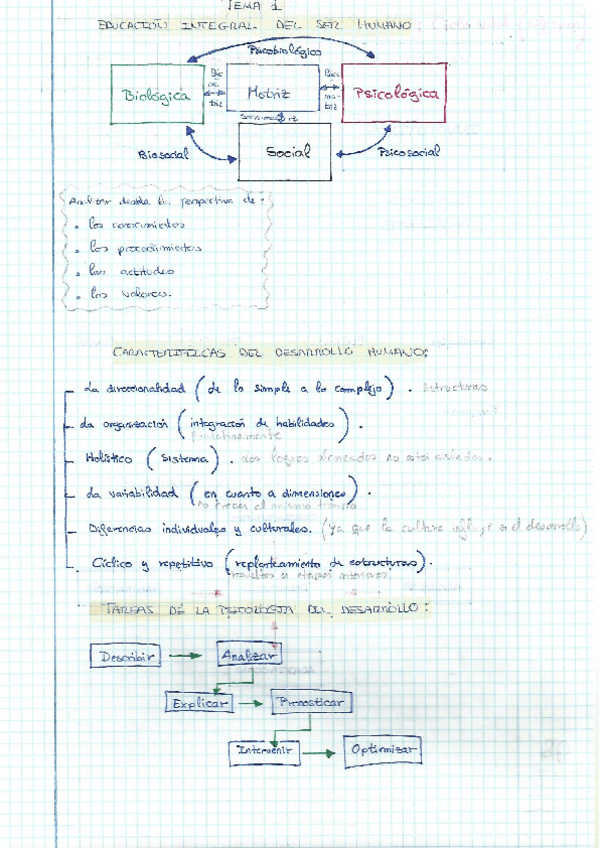 TEMA 1
EDUCACIÓN INTEGRAL DEL SER HUMANO
Psicobiológico
Biológica
Motriz
Psicológica
Biosocial
Social
Psicosocial
Analizar desde la perspectiva de:
• los conocimientos
• los procedimientos
• las actitudes
• los valores.
CARACTERÍSTICAS DEL DESARROLLO HUMANO:
- La direccionalidad (de lo simple a lo complejo). Estructuras
- La organización (integración de habilidades).
- Holístico (sistema). Los logros alcanzados no están aislados.
- La variabilidad (en cuanto a dimensiones).
- Diferencias individuales y culturales. (Ya que la cultura influye en el desarrollo)
- Cíclico y repetitivo (replanteamiento de estructuras).
TAREAS DE LA PSICOLOGÍA DEL DESARROLLO:
Describir
Analizar
Explicar
Pronosticar
Intervenir
Optimizar